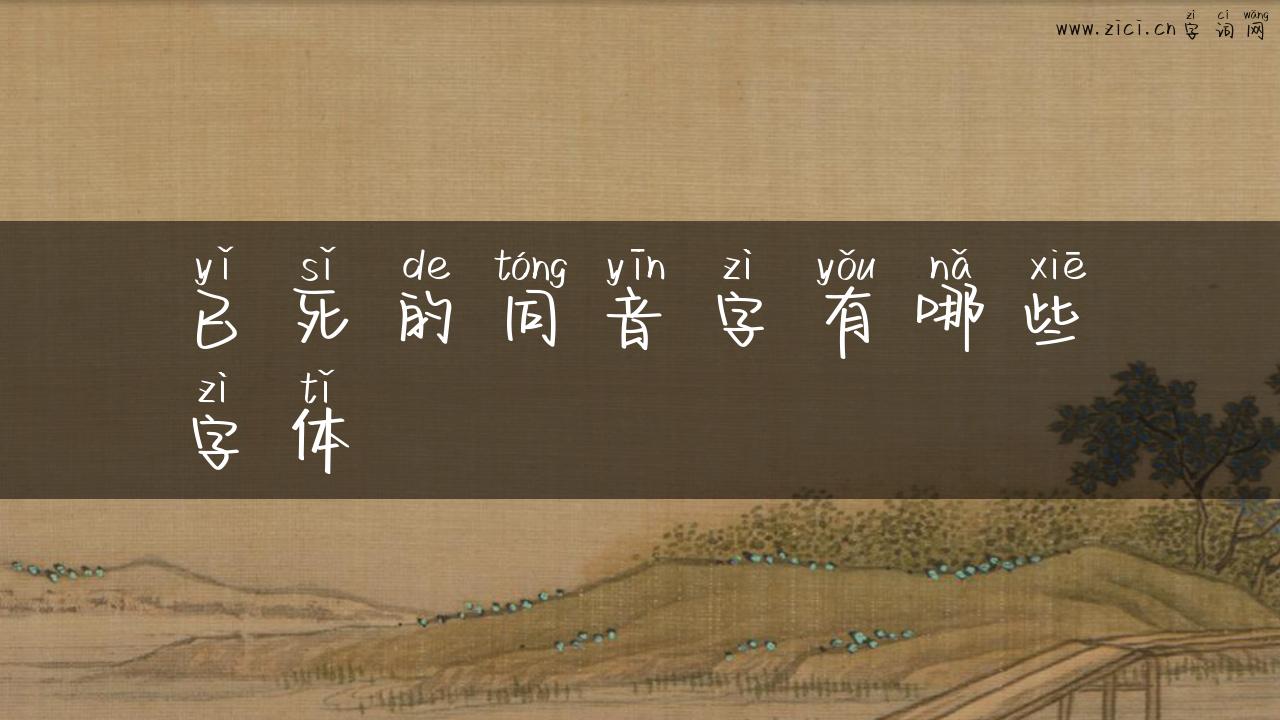 zì cí wǎng
www.zici.cn字词网
yǐ sǐ de tóng yīn zì yǒu nǎ xiē
已死的同音字有哪些
zì tǐ
字体